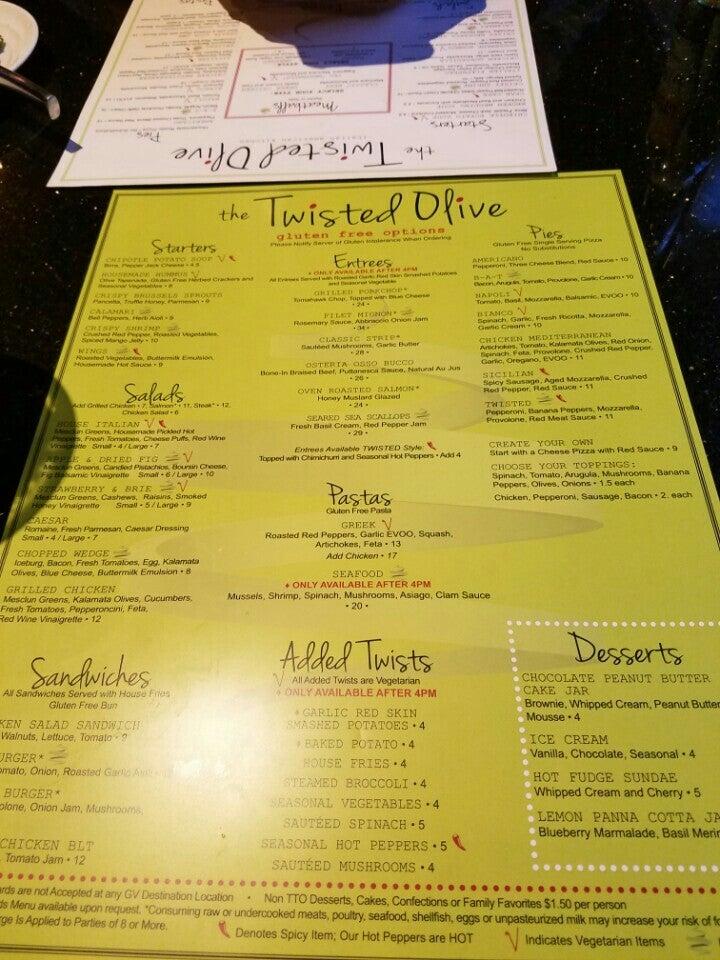 the Twisted Olive
Meatballs
Starters
Pies
the Twisted Olive
gluten free options
Please Notify Server of Gluten Intolerance When Ordering
Starters
CHIPOTLE POTATO SOUP
Bins, Pepper Jack Cheese • 4.5
HOUSEMADE HUMMUS
Olive Tapenade, Gluten Free Herbed Crackers and
Seasonal Vegetables • 8
CRISPY BRUSSELS SPROUTS
Pancetta, Truffle Honey, Parmesan • 9
CALAMARI
Bell Peppers, Herb Aioli • 9
CRISPY SHRIMP
Crushed Red Pepper, Roasted Vegetables,
Spiced Mango Jelly • 10
WINGS
Roasted Vegetables, Buttermilk Emulsion,
Housemade Hot Sauce • 9
Salads
Add Grilled Chicken • 7, Salmon* • 11, Steak* • 12,
Chicken Salad • 6
HOUSE ITALIAN
Mesclun Greens, Housemade Pickled Hot
Peppers, Fresh Tomatoes, Cheese Puffs, Red Wine
Vinaigrette Small • 4 / Large • 7
APPLE & DRIED FIG
Mesclun Greens, Candied Pistachios, Boursin Cheese,
Fig Balsamic Vinaigrette Small • 6 / Large • 10
STRAWBERRY & BRIE
Mesclun Greens, Cashews, Raisins, Smoked
Honey Vinaigrette Small • 5 / Large • 9
CAESAR
Romaine, Fresh Parmesan, Caesar Dressing
Small • 4 / Large • 7
CHOPPED WEDGE
Iceburg, Bacon, Fresh Tomatoes, Egg, Kalamata
Olives, Blue Cheese, Buttermilk Emulsion • 8
GRILLED CHICKEN
Mesclun Greens, Kalamata Olives, Cucumbers,
Fresh Tomatoes, Pepperoncini, Feta,
Red Wine Vinaigrette • 12
Sandwiches
All Sandwiches Served with House Fries
Gluten Free Bun
KEN SALAD SANDWICH
Walnuts, Lettuce, Tomato • 9
URGER*
omato, Onion, Roasted Garlic Aioli
BURGER*
olone, Onion Jam, Mushrooms,
CHICKEN BLT
Tomato Jam • 12
Entrees
♦ ONLY AVAILABLE AFTER 4PM
All Entrees Served with Roasted Garlic Red Skin Smashed Potatoes
and Seasonal Vegetable
GRILLED PORKCHOP*
Tomahawk Chop, Topped with Blue Cheese
• 24 •
FILET MIGNON*
Rosemary Sauce, Abbriaccio Onion Jam
• 34 •
CLASSIC STRIP*
Sautéed Mushrooms, Garlic Butter
• 28 •
OSTERIA OSSO BUCCO
Bone-In Braised Beef, Puttanesca Sauce, Natural Au Jus
• 26 •
OVEN ROASTED SALMON*
Honey Mustard Glazed
• 24 •
SEARED SEA SCALLOPS
Fresh Basil Cream, Red Pepper Jam
• 29 •
Entrees Available TWISTED Style:
Topped with Chimichurri and Seasonal Hot Peppers • Add 4
Pastas
Gluten Free Pasta
GREEK
Roasted Red Peppers, Garlic EVOO, Squash,
Artichokes, Feta • 13
Add Chicken • 17
SEAFOOD
♦ ONLY AVAILABLE AFTER 4PM
Mussels, Shrimp, Spinach, Mushrooms, Asiago, Clam Sauce
• 20 •
Added Twists
All Added Twists are Vegetarian
♦ ONLY AVAILABLE AFTER 4PM
♦ GARLIC RED SKIN
SMASHED POTATOES • 4
♦ BAKED POTATO • 4
HOUSE FRIES • 4
STEAMED BROCCOLI • 4
SEASONAL VEGETABLES • 4
SAUTÉED SPINACH • 5
SEASONAL HOT PEPPERS • 5
SAUTÉED MUSHROOMS • 4
Pies
Gluten Free Single Serving Pizza
No Substitutions
AMERICANO
Pepperoni, Three Cheese Blend, Red Sauce • 10
B-A-T
Bacon, Arugula, Tomato, Provolone, Garlic Cream • 10
NAPOLI
Tomato, Basil, Mozzarella, Balsamic, EVOO • 10
BIANCO
Spinach, Garlic, Fresh Ricotta, Mozzarella,
Garlic Cream • 10
CHICKEN MEDITERRANEAN
Artichokes, Tomato, Kalamata Olives, Red Onion,
Spinach, Feta, Provolone, Crushed Red Pepper,
Garlic, Oregano, EVOO • 11
SICILIAN
Spicy Sausage, Aged Mozzarella, Crushed
Red Pepper, Red Sauce • 11
TWISTED
Pepperoni, Banana Peppers, Mozzarella,
Provolone, Red Meat Sauce • 11
CREATE YOUR OWN
Start with a Cheese Pizza with Red Sauce • 9
CHOOSE YOUR TOPPINGS:
Spinach, Tomato, Arugula, Mushrooms, Banana
Peppers, Olives, Onions • 1.5 each
Chicken, Pepperoni, Sausage, Bacon • 2. each
Desserts
CHOCOLATE PEANUT BUTTER
CAKE JAR
Brownie, Whipped Cream, Peanut Butter
Mousse • 4
ICE CREAM
Vanilla, Chocolate, Seasonal • 4
HOT FUDGE SUNDAE
Whipped Cream and Cherry • 5
LEMON PANNA COTTA JA
Blueberry Marmalade, Basil Merin
ards are not Accepted at any GV Destination Location • Non TTO Desserts, Cakes, Confections or Family Favorites $1.50 per person
ds Menu available upon request. *Consuming raw or undercooked meats, poultry, seafood, shellfish, eggs or unpasteurized milk may increase your risk of fo
arge Is Applied to Parties of 8 or More.
Denotes Spicy Item; Our Hot Peppers are HOT
Indicates Vegetarian Items